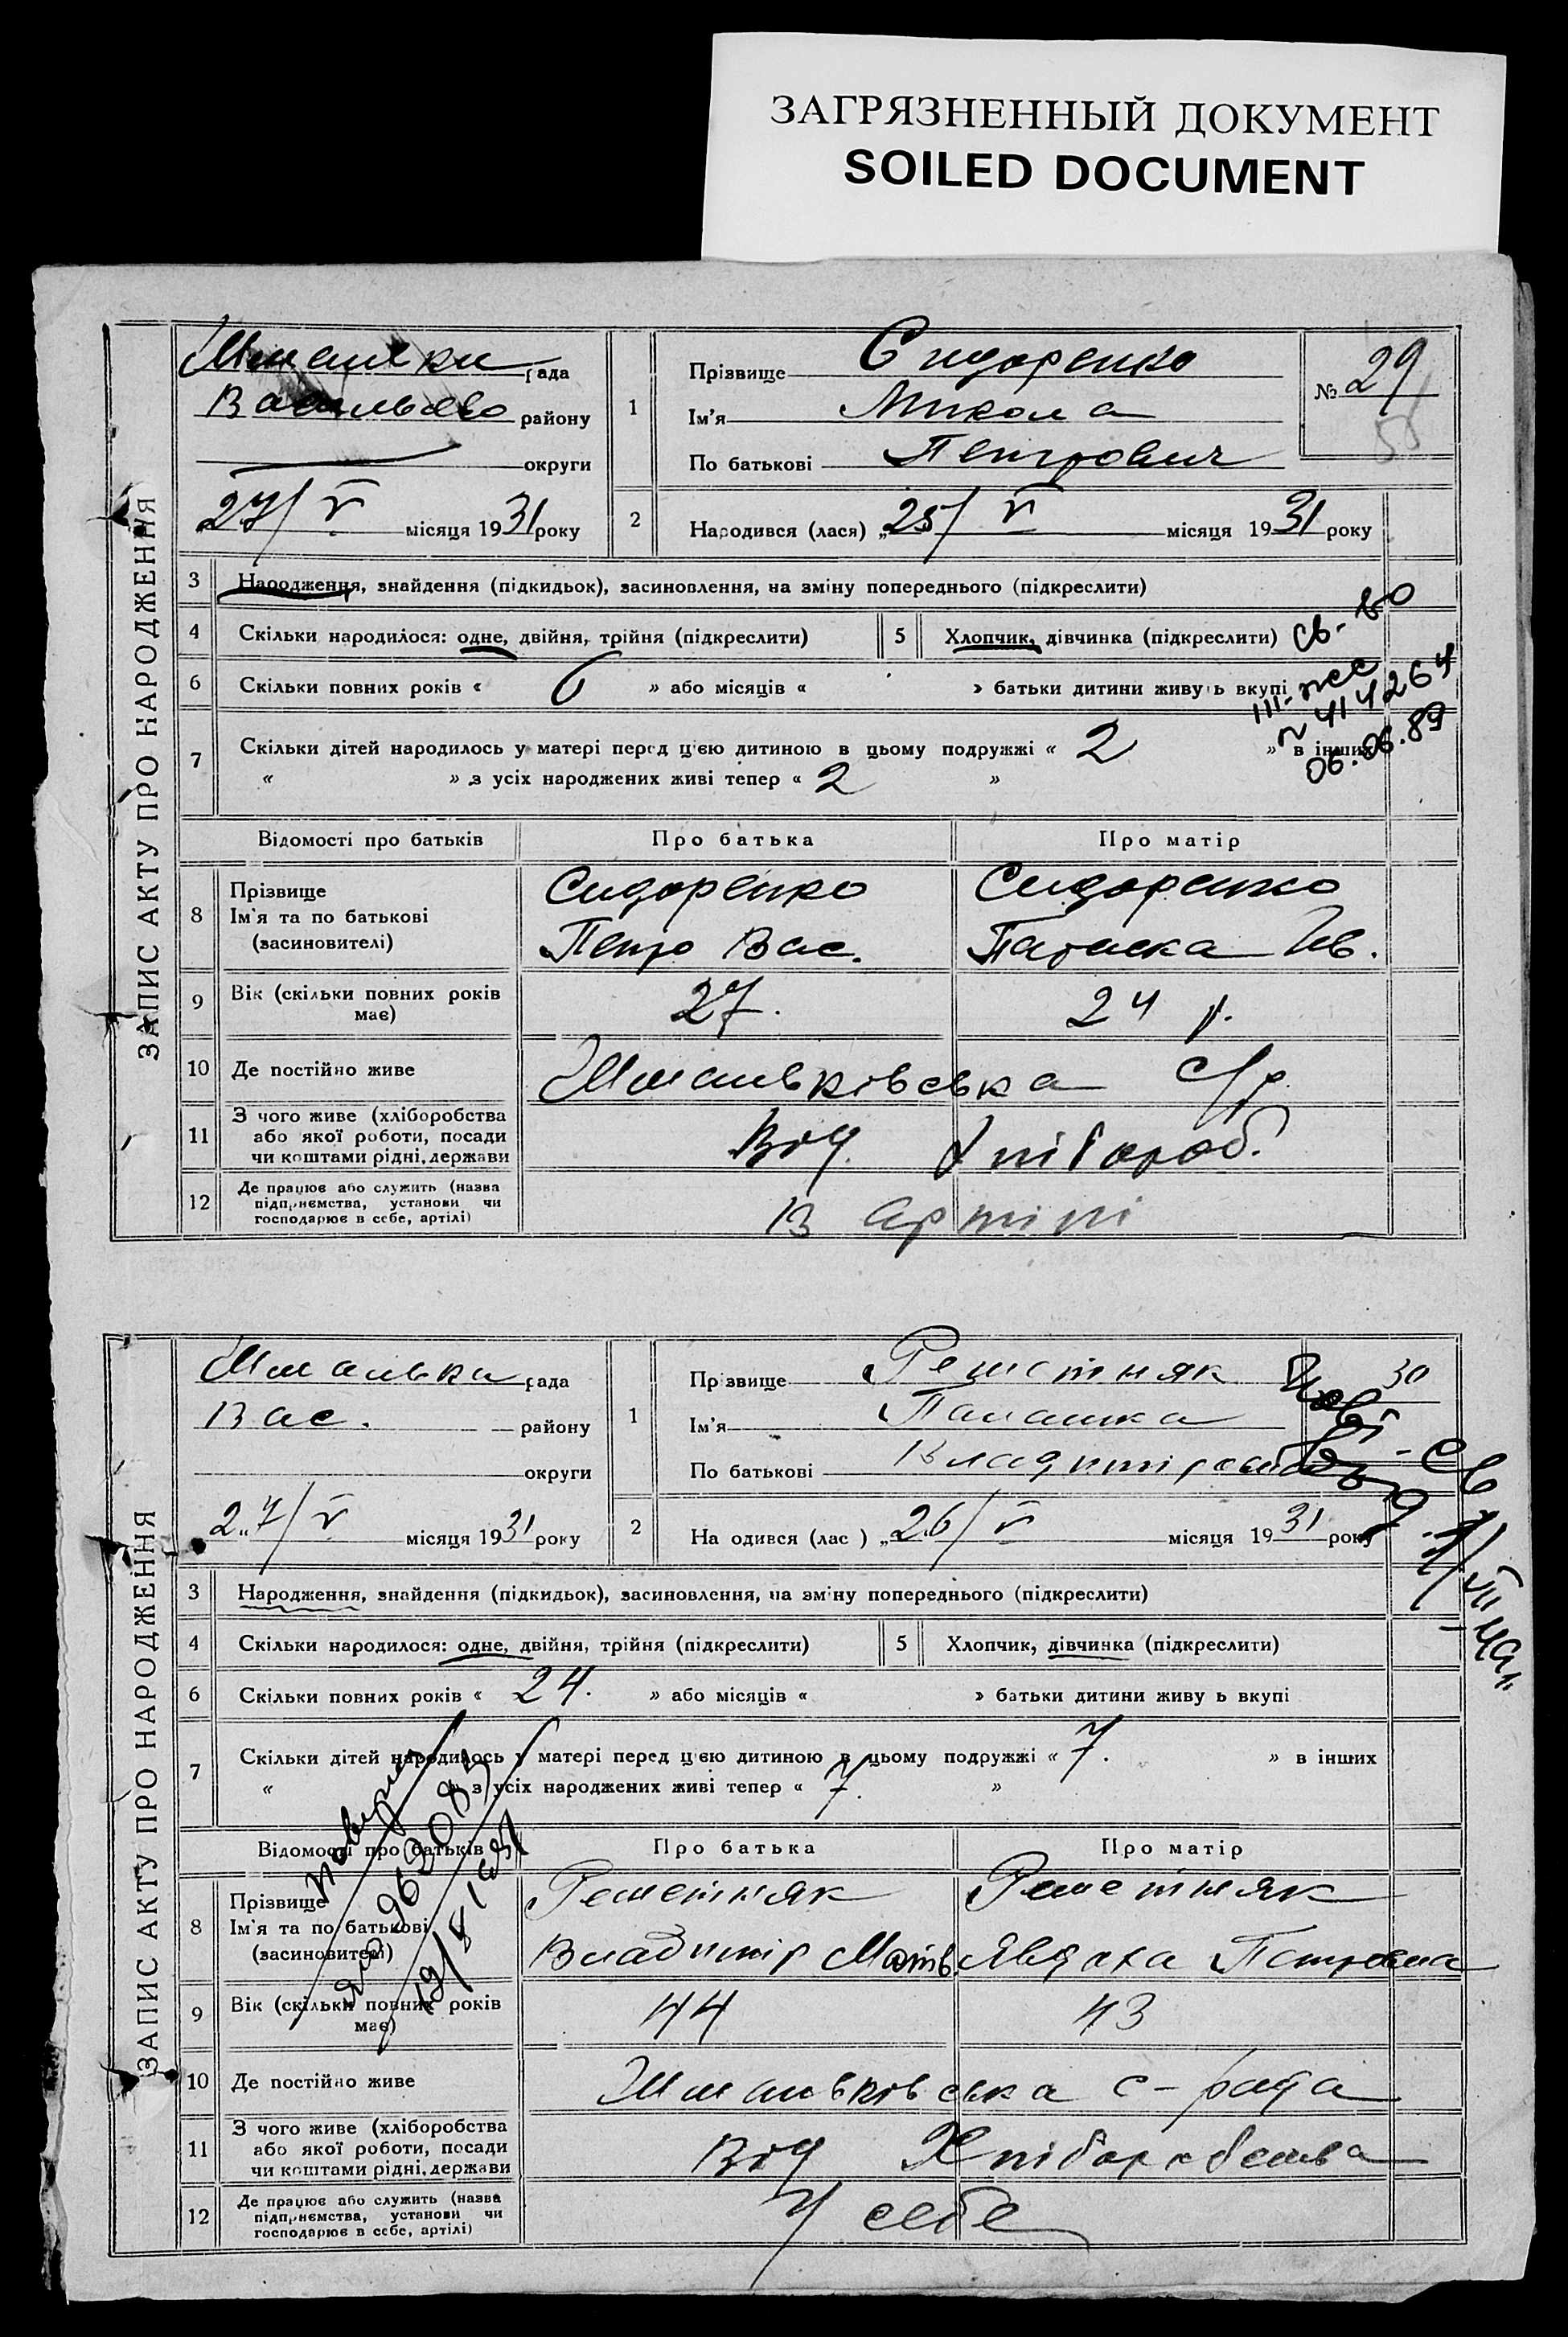 ЗАГРЯЗНЕННЫЙ ДОКУМЕНТ
SOILED DOCUMENT
ЗАПИС АКТУ ПРО НАРОДЖЕННЯ
рада
району
округи
27/V місяця 1931 року
1
Прізвище Сидоренко
Ім'я Микола
По батькові Петрович
№ 29
2
Народився (лася) „25/V місяця 1931 року
3 Народження, знайдення (підкидьок), засиновлення, на зміну попереднього (підкреслити)
4 Скільки народилося: одне, двійня, трійня (підкреслити)
5 Хлопчик, дівчинка (підкреслити)
св-во
III-
№ 414264
06.06.89
6 Скільки повних років « 6 » або місяців « » батьки дитини живуть вкупі
7 Скільки дітей народилось у матері перед цією дитиною в цьому подружжі « 2 » в інших
« » з усіх народжених живі тепер « 2 »
Відомості про батьків Про батька Про матір
8 Прізвище
Ім'я та по батькові
(засиновителі)
Сидоренко
Петро Вас.
Сидоренко
Ів.
9 Вік (скільки повних років має) 27. 24 р.
10 Де постійно живе с/р.
11 З чого живе (хліборобства
або якої роботи, посади
чи коштами рідні, держави
Від хлібороб.
12 Де працює або служить (назва
підприємства, установи чи
господарює в себе, артілі)
В артілі
ЗАПИС АКТУ ПРО НАРОДЖЕННЯ
рада
Вас. району
округи
27/V місяця 1931 року
1
Прізвище Решетняк
Ім'я Палашка
По батькові
30
2
Народився (лас ) „26/V місяця 1931 року
3 Народження, знайдення (підкидьок), засиновлення, на зміну попереднього (підкреслити)
4 Скільки народилося: одне, двійня, трійня (підкреслити)
5 Хлопчик, дівчинка (підкреслити)
6 Скільки повних років « 24. » або місяців « » батьки дитини живу ь вкупі
7 Скільки дітей народилось у матері перед цією дитиною в цьому подружжі « 7. » в інших
« » з усіх народжених живі тепер « 7. »
Відомості про батьків Про батька Про матір
8 Прізвище
Ім'я та по батькові
(засиновителі)
Решетняк
Владимір Матв.
Решетняк
Явдоха Петровна
9 Вік (скільки повних років має) 44 43
10 Де постійно живе с-рада
11 З чого живе (хліборобства
або якої роботи, посади
чи коштами рідні, держави
Від Хліборобства
12 Де працює або служить (назва
підприємства, установи чи
господарює в себе, артілі)
У себе